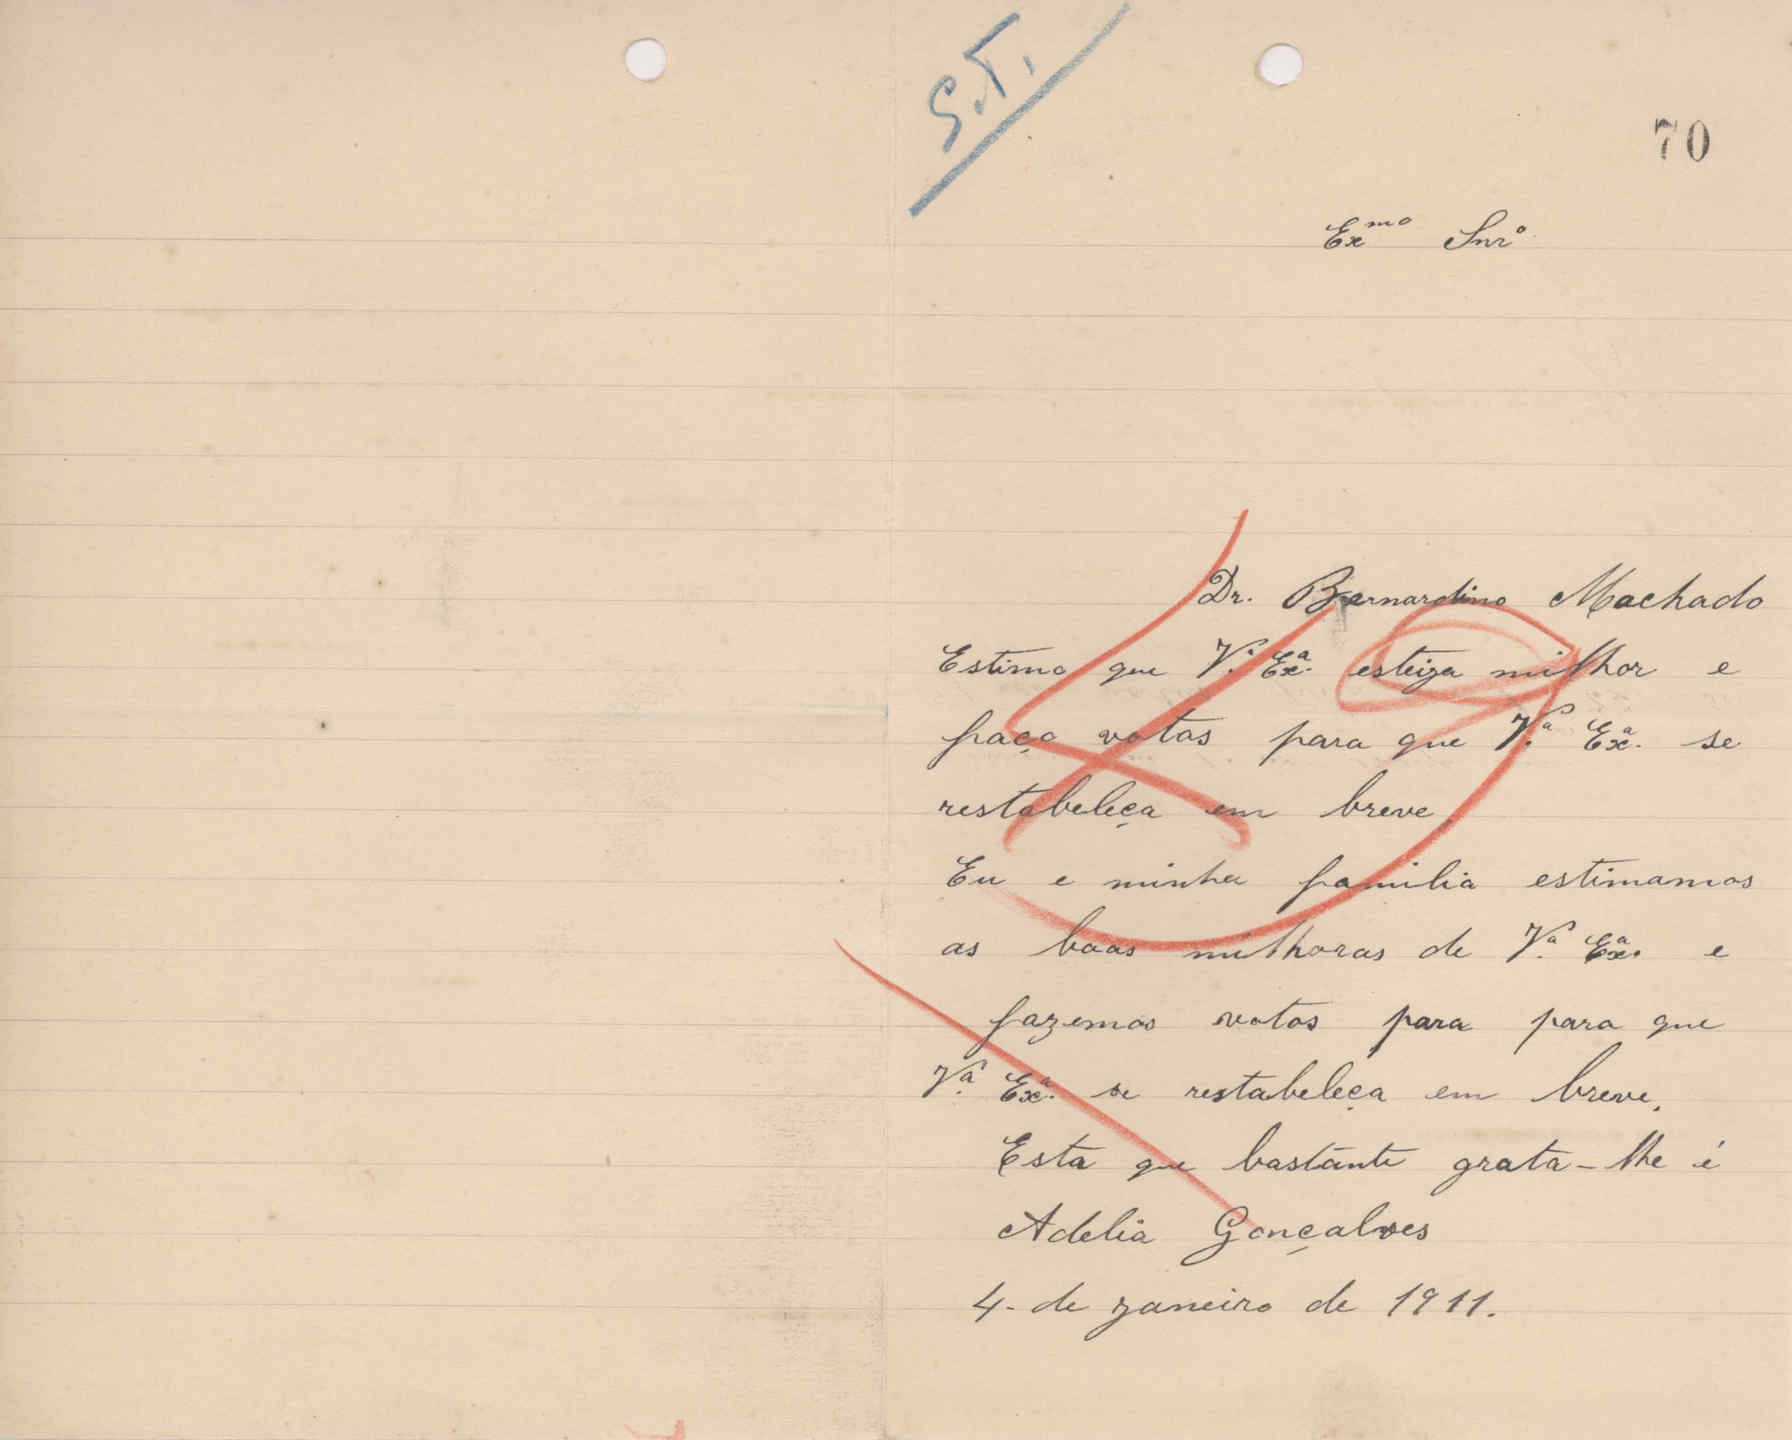 70
Exmo Snro
Dr. Bernardino Machado
Estimo que V.ª Exª. esteiga milhor e
faço votos para que V.ª Exª. se
restabeleça em breve
Eu e minha familia estimamos
as boas milhoras de V.ª Exª. e
fazemos votos para para que
V.ª Exª. se restabeleça em breve.
Esta que bastante grata-lhe é
Adelia Gonçalves
4- de zaneiro de 1911.